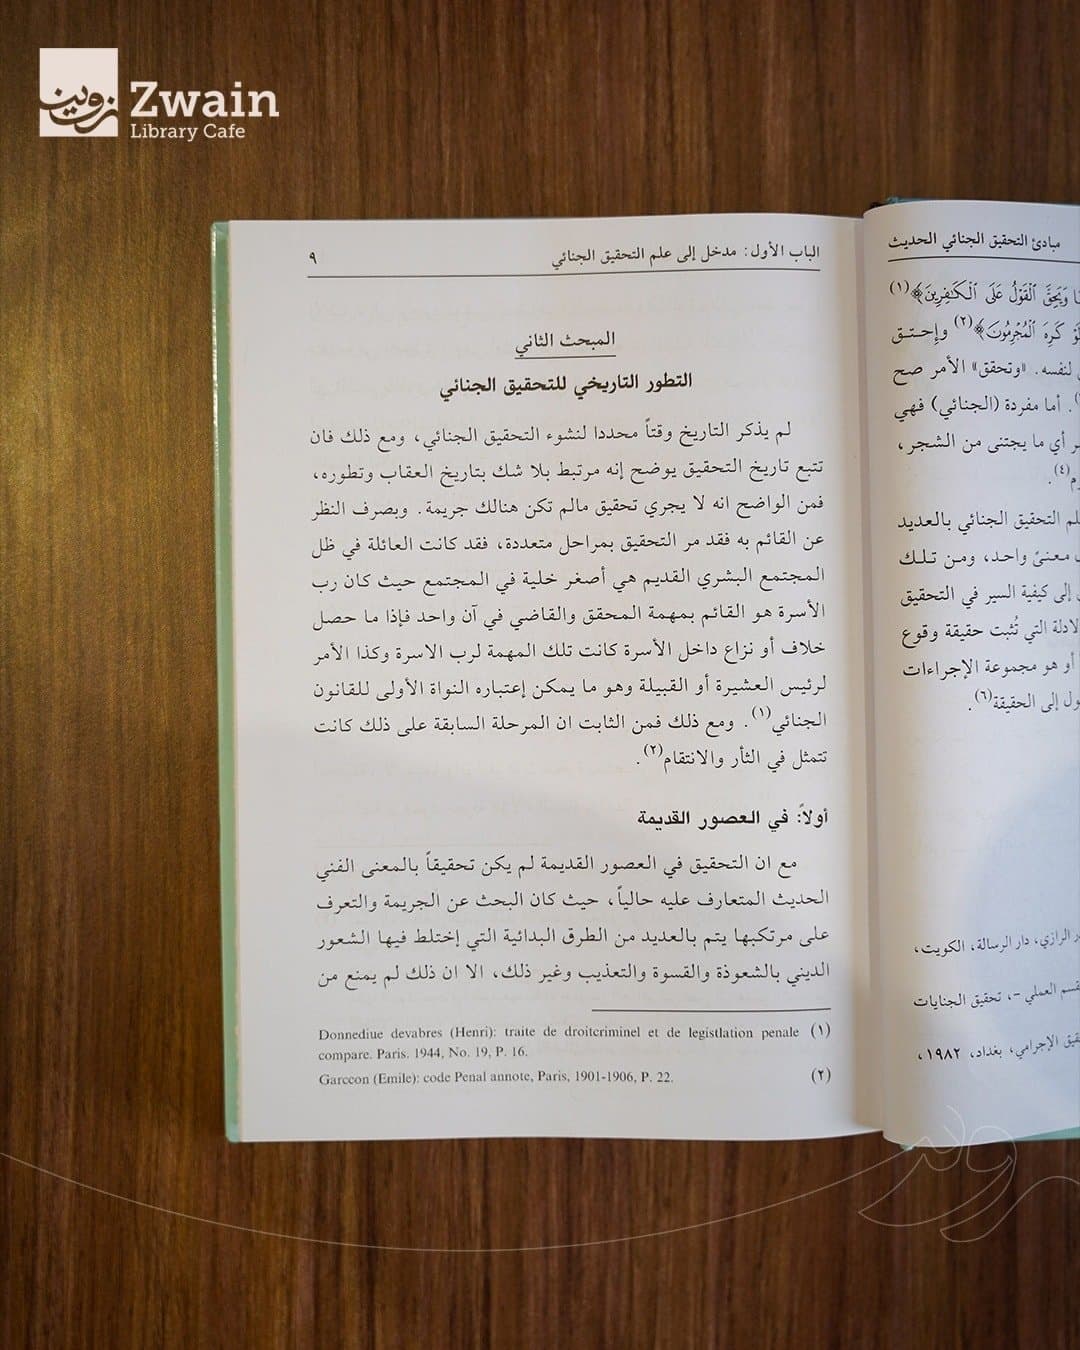 زوين
Zwain
Library Cafe
مبادئ التحقيق الجنائي الحديث
وَيَحِقَّ ٱلْقَوْلُ عَلَى ٱلْكَـٰفِرِينَ﴾(١)
كَرِهَ ٱلْمُجْرِمُونَ﴾(٢) وإحتـق
لنفسه. «وتحقق» الأمر صح
. أما مفردة (الجنائي) فهي
أي ما يجتنى من الشجر،
(٤).
التحقيق الجنائي بالعديد
معنىً واحد، ومن تلـك
إلى كيفية السير في التحقيق
التي تُثبت حقيقة وقوع
أو هو مجموعة الإجراءات
إلى الحقيقة(٦).
الرازي، دار الرسالة، الكويت،
العملي -، تحقيق الجنايات
الإجرامي، بغداد، ١٩٨٢،
الباب الأول: مدخل إلى علم التحقيق الجنائي ٩
المبحث الثاني
التطور التاريخي للتحقيق الجنائي
لم يذكر التاريخ وقتاً محددا لنشوء التحقيق الجنائي، ومع ذلك فان
تتبع تاريخ التحقيق يوضح إنه مرتبط بلا شك بتاريخ العقاب وتطوره،
فمن الواضح انه لا يجري تحقيق مالم تكن هنالك جريمة. وبصرف النظر
عن القائم به فقد مر التحقيق بمراحل متعددة، فقد كانت العائلة في ظل
المجتمع البشري القديم هي أصغر خلية في المجتمع حيث كان رب
الأسرة هو القائم بمهمة المحقق والقاضي في آن واحد فإذا ما حصل
خلاف أو نزاع داخل الأسرة كانت تلك المهمة لرب الاسرة وكذا الأمر
لرئيس العشيرة أو القبيلة وهو ما يمكن إعتباره النواة الأولى للقانون
الجنائي(١). ومع ذلك فمن الثابت ان المرحلة السابقة على ذلك كانت
تتمثل في الثأر والانتقام(٢).
أولاً: في العصور القديمة
مع ان التحقيق في العصور القديمة لم يكن تحقيقاً بالمعنى الفني
الحديث المتعارف عليه حالياً، حيث كان البحث عن الجريمة والتعرف
على مرتكبها يتم بالعديد من الطرق البدائية التي إختلط فيها الشعور
الديني بالشعوذة والقسوة والتعذيب وغير ذلك، الا ان ذلك لم يمنع من
(١) Donnediue devabres (Henri): traite de droitcriminel et de legistlation penale
compare. Paris. 1944, No. 19, P. 16.
(٢) Garceon (Emile): code Penal annote, Paris, 1901-1906, P. 22.